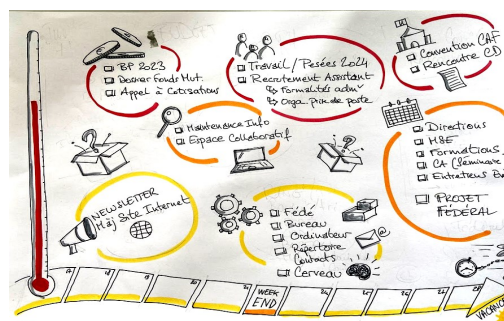 BP 2023
Dossier Fonds Mut.
Appel à Cotisations
Travail / Pesées 2024
Recrutement Assistant
Formalités adm
Orga. prise de poste
Convention CAF
Rencontre CD
Maintenance Info
Espace Collaboratif
Directions
Formations
CA (Séminaire
Entretiens
PROJET
FÉDÉRAL
NEWSLETTER
Màj Site Internet
Fédé
Bureau
Ordinateur
Répertoire
Contacts
Cerveau
WEEK
END
VACANC